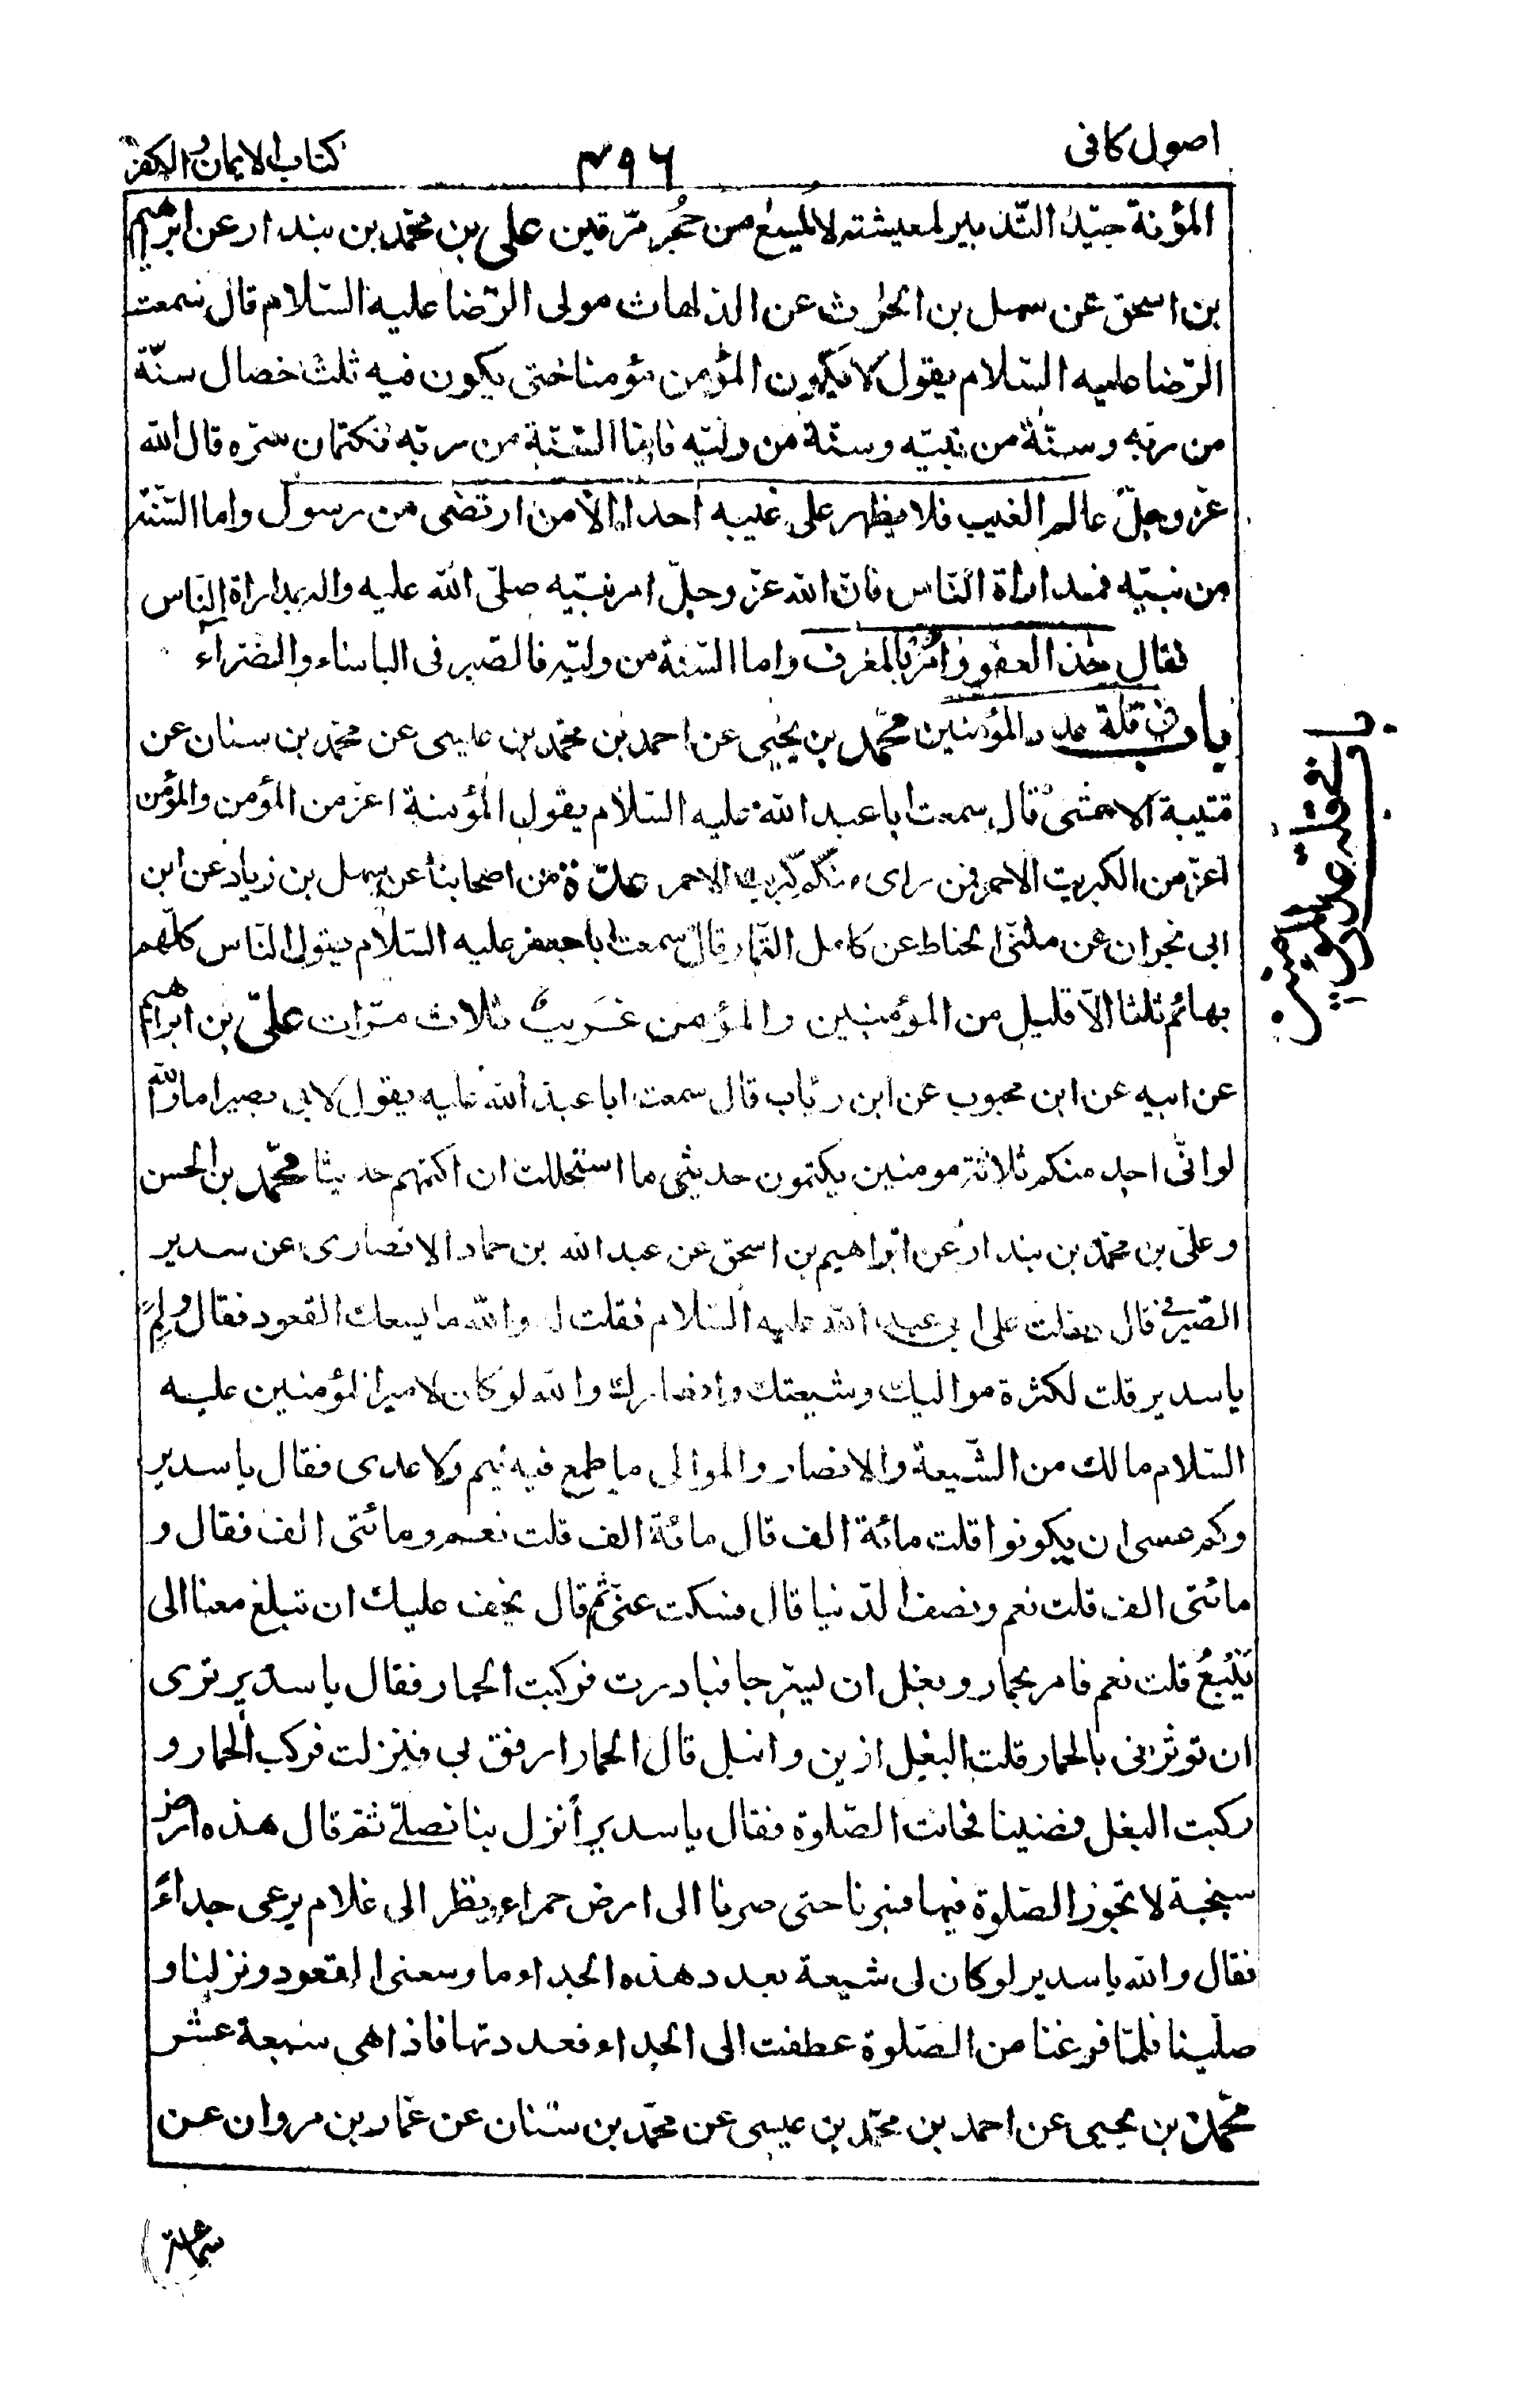 اصول کافی
۴۹۶
کتاب الایمان و الکفر
المؤنة جيّدُ التّدبير لمعيشته لا يلسع من حُجر مرّتين علی بن محمّد بن بندار عن ابرهيم
بن اسحق عن سهل بن الحرث عن الدلهاث مولی الرّضا عليه السّلام قال سمعت
الرّضا عليه السّلام يقول لا يكون المؤمن مؤمنا حتی يكون فيه ثلث خصال سنّة
من ربّه و سنّة من نبيّه و سنّة من وليّه فامّا السّنّة من ربّه فكتمان سرّه قال الله
عزّ وجلّ عالم الغيب فلا يظهر علی غيبه احدا الّا من ارتضی من رسول واما السّنّة
من نبيّه فمداراة النّاس فانّ الله عزّ وجلّ امر نبيّه صلّی الله عليه واله بمداراة النّاس
فقال خذ العفو وأمُرْ بالعرف واما السّنة من وليّه فالصّبر فی الباساء والضّراء
باب فی قلّة عدد المؤمنين محمّد بن يحيی عن احمد بن محمّد بن عليسی عن محمّد بن سنان عن
قتيبة الاعشی قال سمعت ابا عبد الله عليه السّلام يقول المؤمنة اعزّ من المؤمن والمؤمن
اعزّ من الكبريت الاحمر فمن رای منكم الكبريت الاحمر عدّة من اصحابنا عن سهل بن زياد عن ابن
ابی نجران عن مثنّی الحناط عن كامل التّمار قال سمعت ابا جعفر عليه السّلام يقول النّاس كلّهم
بهائم ثلثا الّا قليل من المؤمنين والمؤمن غَريبٌ ثلاث مرّات علیّ بن ابراهيم
عن ابيه عن ابن محبوب عن ابن رئاب قال سمعت ابا عبد الله عليه يقول لابی بصير اما والله
لو انّی اجد منكم ثلاثة مومنين يكتمون حديثی ما استحللت ان اكتمهم حديثا محمّد بن الحسن
وعلیّ بن محمّد بن بندار عن ابراهيم بن اسحق عن عبد الله بن حماد الانصاری عن سدير
الصّيرفی قال دخلت علی ابی عبد الله عليه السّلام فقلت له والله ما يسعك القعود فقال ولِمَ
يا سدير قلت لكثرة مواليك وشيعتك وانصارك والله لو كان لامير المؤمنين عليه
السّلام مالك من الشّيعة والانصار والموالی ما طمع فيه تيم ولا عدی فقال يا سدير
وكم عسی ان يكونوا قلت مائة الف قال مائة الف قلت نعم ومائتی الف فقال و
مائتی الف قلت نعم ونصف الدّنيا قال فسكت عنّی ثم قال يخف عليك ان تبلغ معنا الی
يَنْبُعَ قلت نعم فامر بحمار وبغل ان يسرجا فبادرت فركبت الحمار فقال يا سدير تری
ان توثرنی بالحمار قلت البغل ازين وانبل قال الحمار ارفق بی فنزلت فركب الحمار و
ركبت البغل فمضينا فحانت الصّلوة فقال يا سدير أنزل بنا نصلّی ثم قال هذه ارض
سبخة لا تجوز الصّلوة فيها فسرنا حتی صرنا الی ارض حمراء ونظر الی غلام يرعی جداءً
فقال والله يا سدير لو كان لی شيعة بعدد هذه الجداء ما وسعنی القعود ونزلنا و
صلّينا فلمّا فرغنا من الصّلوة عطفت الی الجداء فعددتها فاذا هی سبعة عشر
محمّد بن يحيی عن احمد بن محمّد بن عيسی عن محمّد بن سنان عن عمّار بن مروان عن
باب فی قلة عدد المؤمنين
سماعة